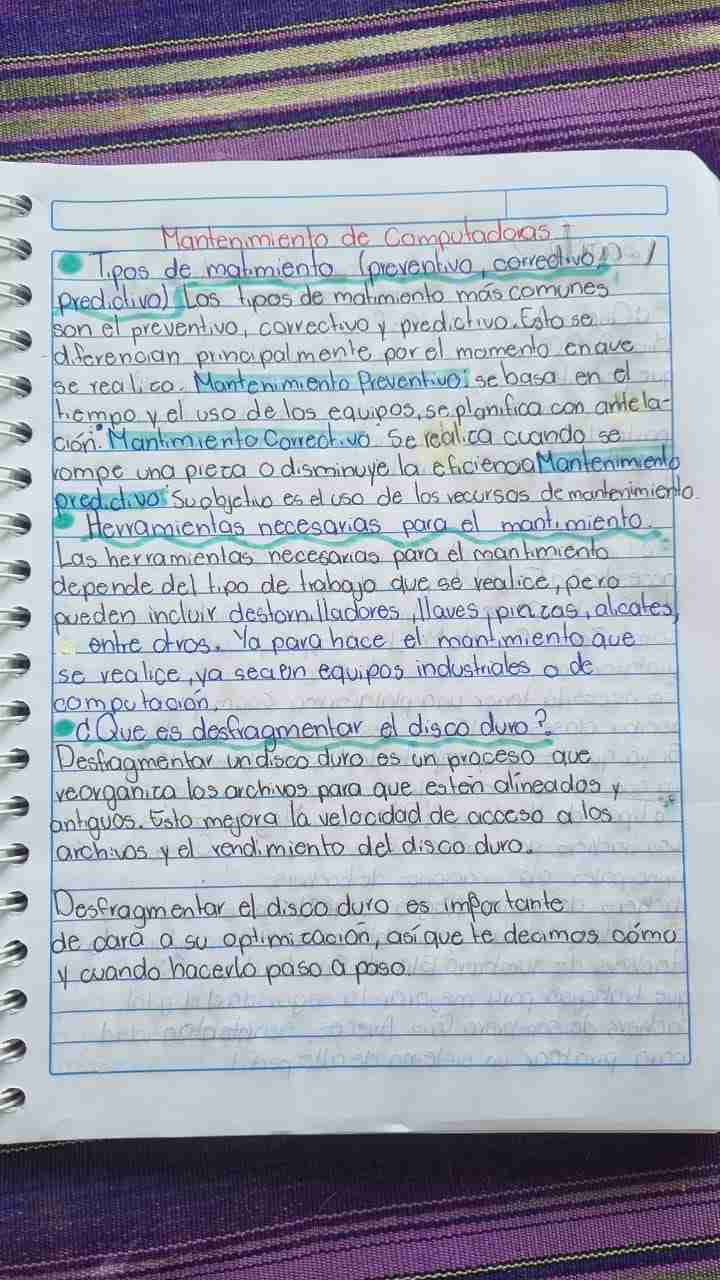 Mantenimiento de Computadoras
Tipos de matimiento (preventivo, correctivo,
predictivo) Los tipos de matimiento más comunes
son el preventivo, correctivo y predictivo. Esto se
diferencian principalmente por el momento en que
se realico. Mantenimiento Preventivo: se basa en el
tiempo y el uso de los equipos, se planifica con antela-
ción. Mantimiento Correctivo Se realica cuando se
rompe una pieza o disminuye la eficiencia Mantenimiento
predictivo: Su objetivo es el uso de los recursos de mantenimiento.
Herramientas necesarias para el mantimiento.
Las herramientas necesarias para el mantimiento
depende del tipo de trabajo que se realice, pero
pueden incluir destornilladores, llaves, pinzas, alicates,
entre otros. Ya para hace el mantimiento que
se realice, ya sea en equipos industriales o de
computación.
¿Que es desfragmentar el disco duro?
Desfragmentar un disco duro es un proceso que
reorganiza los archivos para que estén alineados y
antiguos. Esto mejora la velocidad de acceso a los
archivos y el rendimiento del disco duro.
Desfragmentar el disco duro es importante
de cara a su optimización, así que te decimos cómo
y cuando hacerlo paso a paso